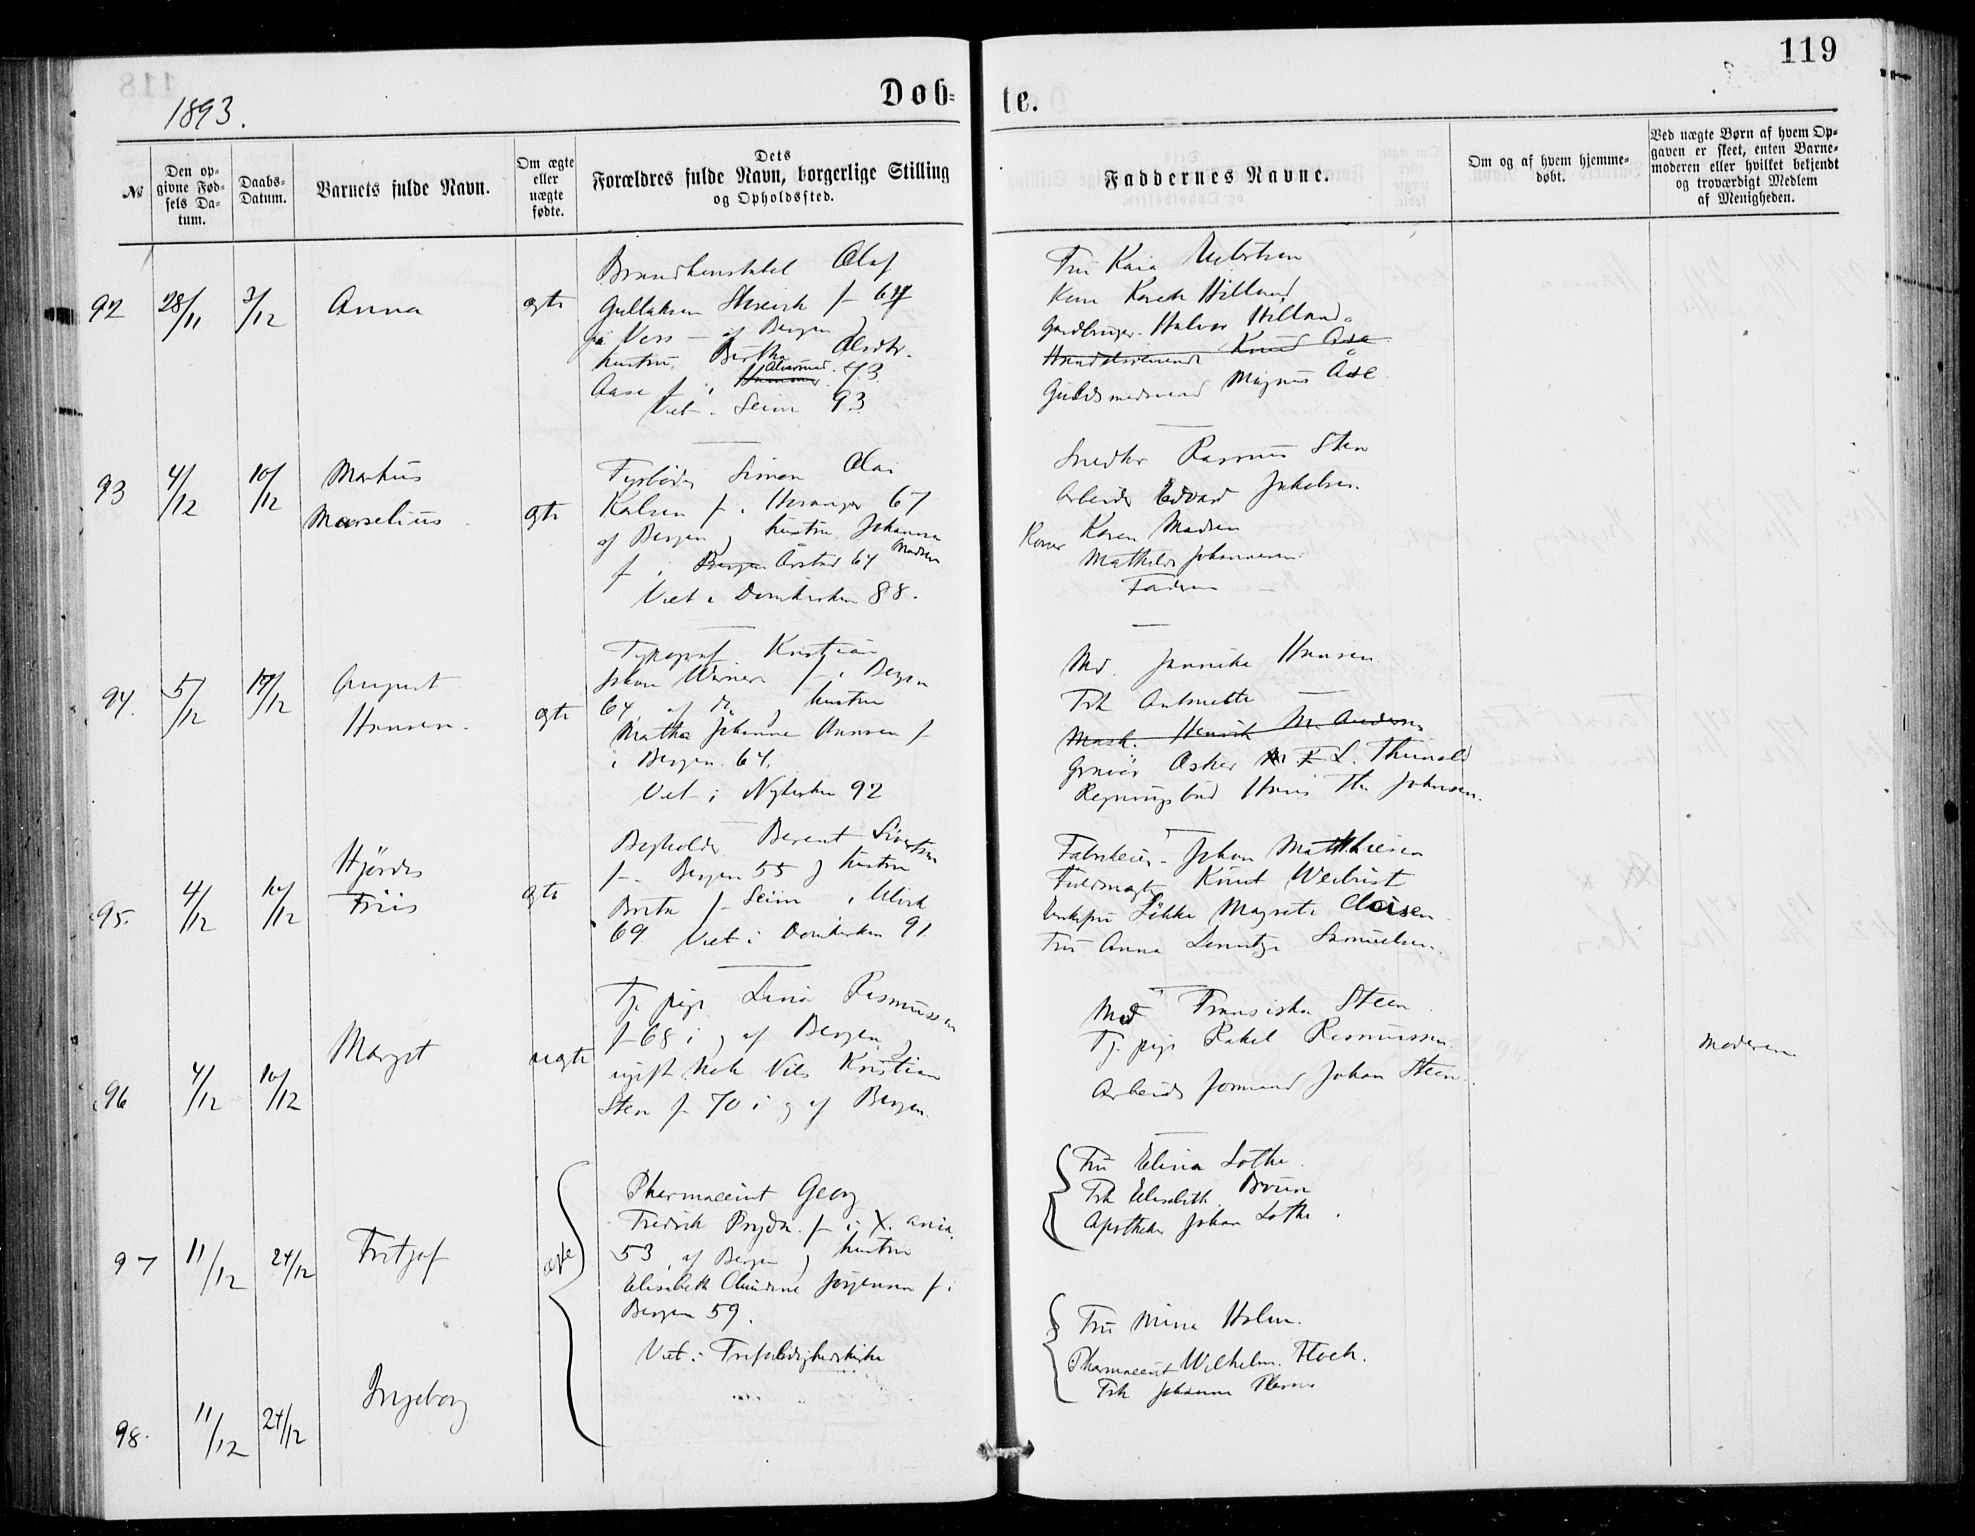 119
1893.
Døb=
te.
№
Den op-
givne Fød-
sels Da-
tum.
Daabs-
Datum.
Barnets fulde Navn.
Om ægte
eller
uægte
fødte.
Dets
Forældres fulde Navn, borgerlige Stilling
og Opholdssted.
Faddernes Navne.
Om og af hvem hjemme-
døbt.
Ved uægte Børn af hvem Op-
gaven er skeet, enten Barne-
moderen eller hvilket bekjendt
og troværdigt Medlem
af Menigheden.
92
28/11
3/12
Anna
ægte
Brandkonstabel Olaf
Gullaksen f 64
på Voss - af Bergen
hustru Bertha Olsdtr.
Aase f i 73
Viet i Seim 93
Fru Kaia
Kone Hilland
Gårdbruger Halvor Hilland
Knud Ase
Guldsmedsvend Magnus Åse
93
4/12
10/12
Markus
Marselius
ægte
Fyrbøder Simon Olai
Karlsen f. i Hosanger 67
af Bergen, hustru Johanna
Madsen
f i Bergen Årstad 64
Viet i Domkirken 88.
Snedker Rasmus Sten
Arbeider Edvard Jakobsen
Koner Karen Madsen
Mathilde Johannesen
Faderen
94.
5/12
17/12
August
Hansen.
ægte
Typograf Kristian
Johan Werner f. i Bergen
64 af do, hustru
Martha Johanne Hansen f
i Bergen 64.
Viet i Nykirken 92
Mad. Jannike Hansen
Frk Antonette
Mask. Henrik M. Andersen
Gravør Oskar L. Thunold
Regningsbud Hans Th Johnsen.
95.
4/12
10/12
Hjördis
Friis
ægte
Berent Sivertsen
f. Bergen 55 & hustru
Brita f Seim i
69. Viet i Domkirken 91.
Fabrikeier Johan Matthiesen
Fuldmægtig Knut
Enkefru Magrete Claisen
Fru Anna Samuelsen.
96
4/12
10/12
Margit
uægte
Tj. pige Lina Rasmussen
f 68 i & af Bergen
ugift Nils Kristian
Sten f 70 i & af Bergen.
Mad Fransiska Steen
Tj. pige Rakel Rasmussen
Arbeids formand Johan Steen.
Moderen
97
11/12
24/12
Fritjof
ægte
Pharmaceut Georg
Fredrik Prydz f i X.ania
53, af Bergen & hustru
Elisabeth Jørgensen f. i
Bergen 59.
Viet i Trefoldighedskirke
Fru Elina Lothe.
Frk Elisabeth Bruun
Apotheker Johan Lothe.
98.
11/12
24/12
Ingeborg
Fru Mina Holm.
Pharmaceut Wilhelm Floch.
Frk Johanne